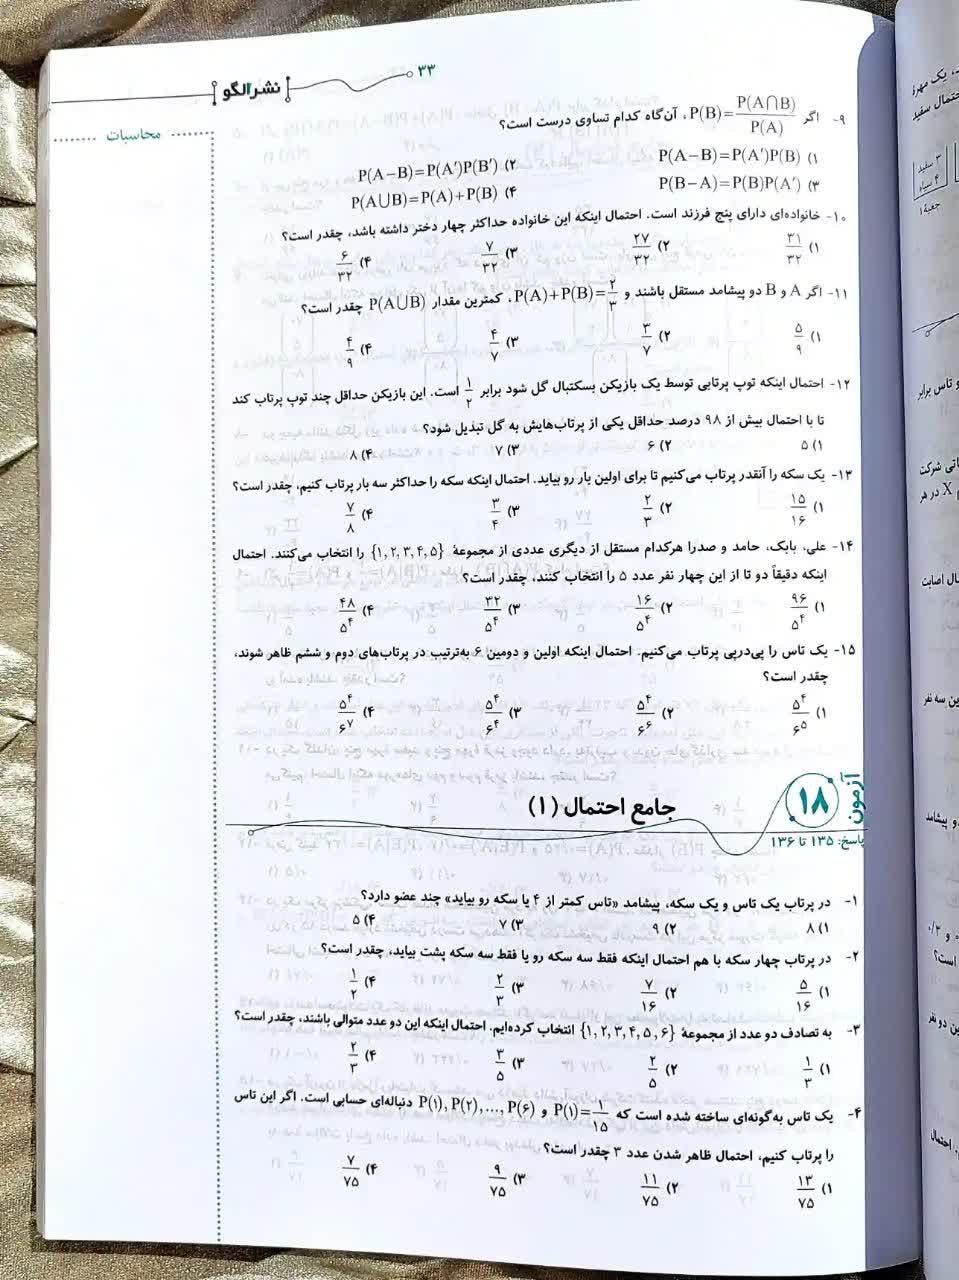 ۳۳
نشر الگو
محاسبات
۹- اگر P(B)=P(A∩B)/P(A)، آن‌گاه کدام تساوی درست است؟
۱) P(A−B)=P(A′)P(B) ۲) P(A−B)=P(A′)P(B′)
۳) P(B−A)=P(B)P(A′) ۴) P(A∪B)=P(A)+P(B)
۱۰- خانواده‌ای دارای پنج فرزند است. احتمال اینکه این خانواده حداکثر چهار دختر داشته باشد، چقدر است؟
۱) ۳۱/۳۲ ۲) ۲۷/۳۲ ۳) ۷/۳۲ ۴) ۶/۳۲
۱۱- اگر A و B دو پیشامد مستقل باشند و P(A)+P(B)=۲/۳، کمترین مقدار P(A∪B) چقدر است؟
۱) ۵/۹ ۲) ۳/۷ ۳) ۴/۷ ۴) ۴/۹
۱۲- احتمال اینکه توپ پرتابی توسط یک بازیکن بسکتبال گل شود برابر ۱/۲ است. این بازیکن حداقل چند توپ پرتاب کند
تا با احتمال بیش از ۹۸ درصد حداقل یکی از پرتاب‌هایش به گل تبدیل شود؟
۱) ۵ ۲) ۶ ۳) ۷ ۴) ۸
۱۳- یک سکه را آنقدر پرتاب می‌کنیم تا برای اولین بار رو بیاید. احتمال اینکه سکه را حداکثر سه بار پرتاب کنیم، چقدر است؟
۱) ۱۵/۱۶ ۲) ۲/۳ ۳) ۳/۴ ۴) ۷/۸
۱۴- علی، بابک، حامد و صدرا هرکدام مستقل از دیگری عددی از مجموعهٔ {۱,۲,۳,۴,۵} را انتخاب می‌کنند. احتمال
اینکه دقیقاً دو تا از این چهار نفر عدد ۵ را انتخاب کنند، چقدر است؟
۱) ۹۶/۵⁴ ۲) ۱۶/۵⁴ ۳) ۳۲/۵⁴ ۴) ۴۸/۵⁴
۱۵- یک تاس را پی‌درپی پرتاب می‌کنیم. احتمال اینکه اولین و دومین ۶ به‌ترتیب در پرتاب‌های دوم و ششم ظاهر شوند،
چقدر است؟
۱) ۵⁴/۶⁵ ۲) ۵⁴/۶⁶ ۳) ۵⁴/۶⁴ ۴) ۵⁴/۶⁷
آزمون ۱۸
جامع احتمال (۱)
پاسخ: ۱۳۵ تا ۱۳۶
۱- در پرتاب یک تاس و یک سکه، پیشامد «تاس کمتر از ۴ یا سکه رو بیاید» چند عضو دارد؟
۱) ۸ ۲) ۹ ۳) ۷ ۴) ۵
۲- در پرتاب چهار سکه با هم احتمال اینکه فقط سه سکه رو یا فقط سه سکه پشت بیاید، چقدر است؟
۱) ۵/۱۶ ۲) ۷/۱۶ ۳) ۲/۳ ۴) ۱/۲
۳- به تصادف دو عدد از مجموعهٔ {۱,۲,۳,۴,۵,۶} انتخاب کرده‌ایم. احتمال اینکه این دو عدد متوالی باشند، چقدر است؟
۱) ۱/۳ ۲) ۲/۵ ۳) ۳/۵ ۴) ۲/۳
۴- یک تاس به‌گونه‌ای ساخته شده است که P(۱)=۱/۱۵ و P(۱), P(۲), ..., P(۶) دنباله‌ای حسابی است. اگر این تاس
را پرتاب کنیم، احتمال ظاهر شدن عدد ۳ چقدر است؟
۱) ۱۳/۷۵ ۲) ۱۱/۷۵ ۳) ۹/۷۵ ۴) ۷/۷۵
یک مهره
احتمال سفید
۳ سفید
۴ سیاه
جعبهٔ ۱
و تاس برابر
شرکت
X در هر
اصابت
این سه نفر
و پیشامد
و ۰/۳
است؟
این دو نفر
احتمال